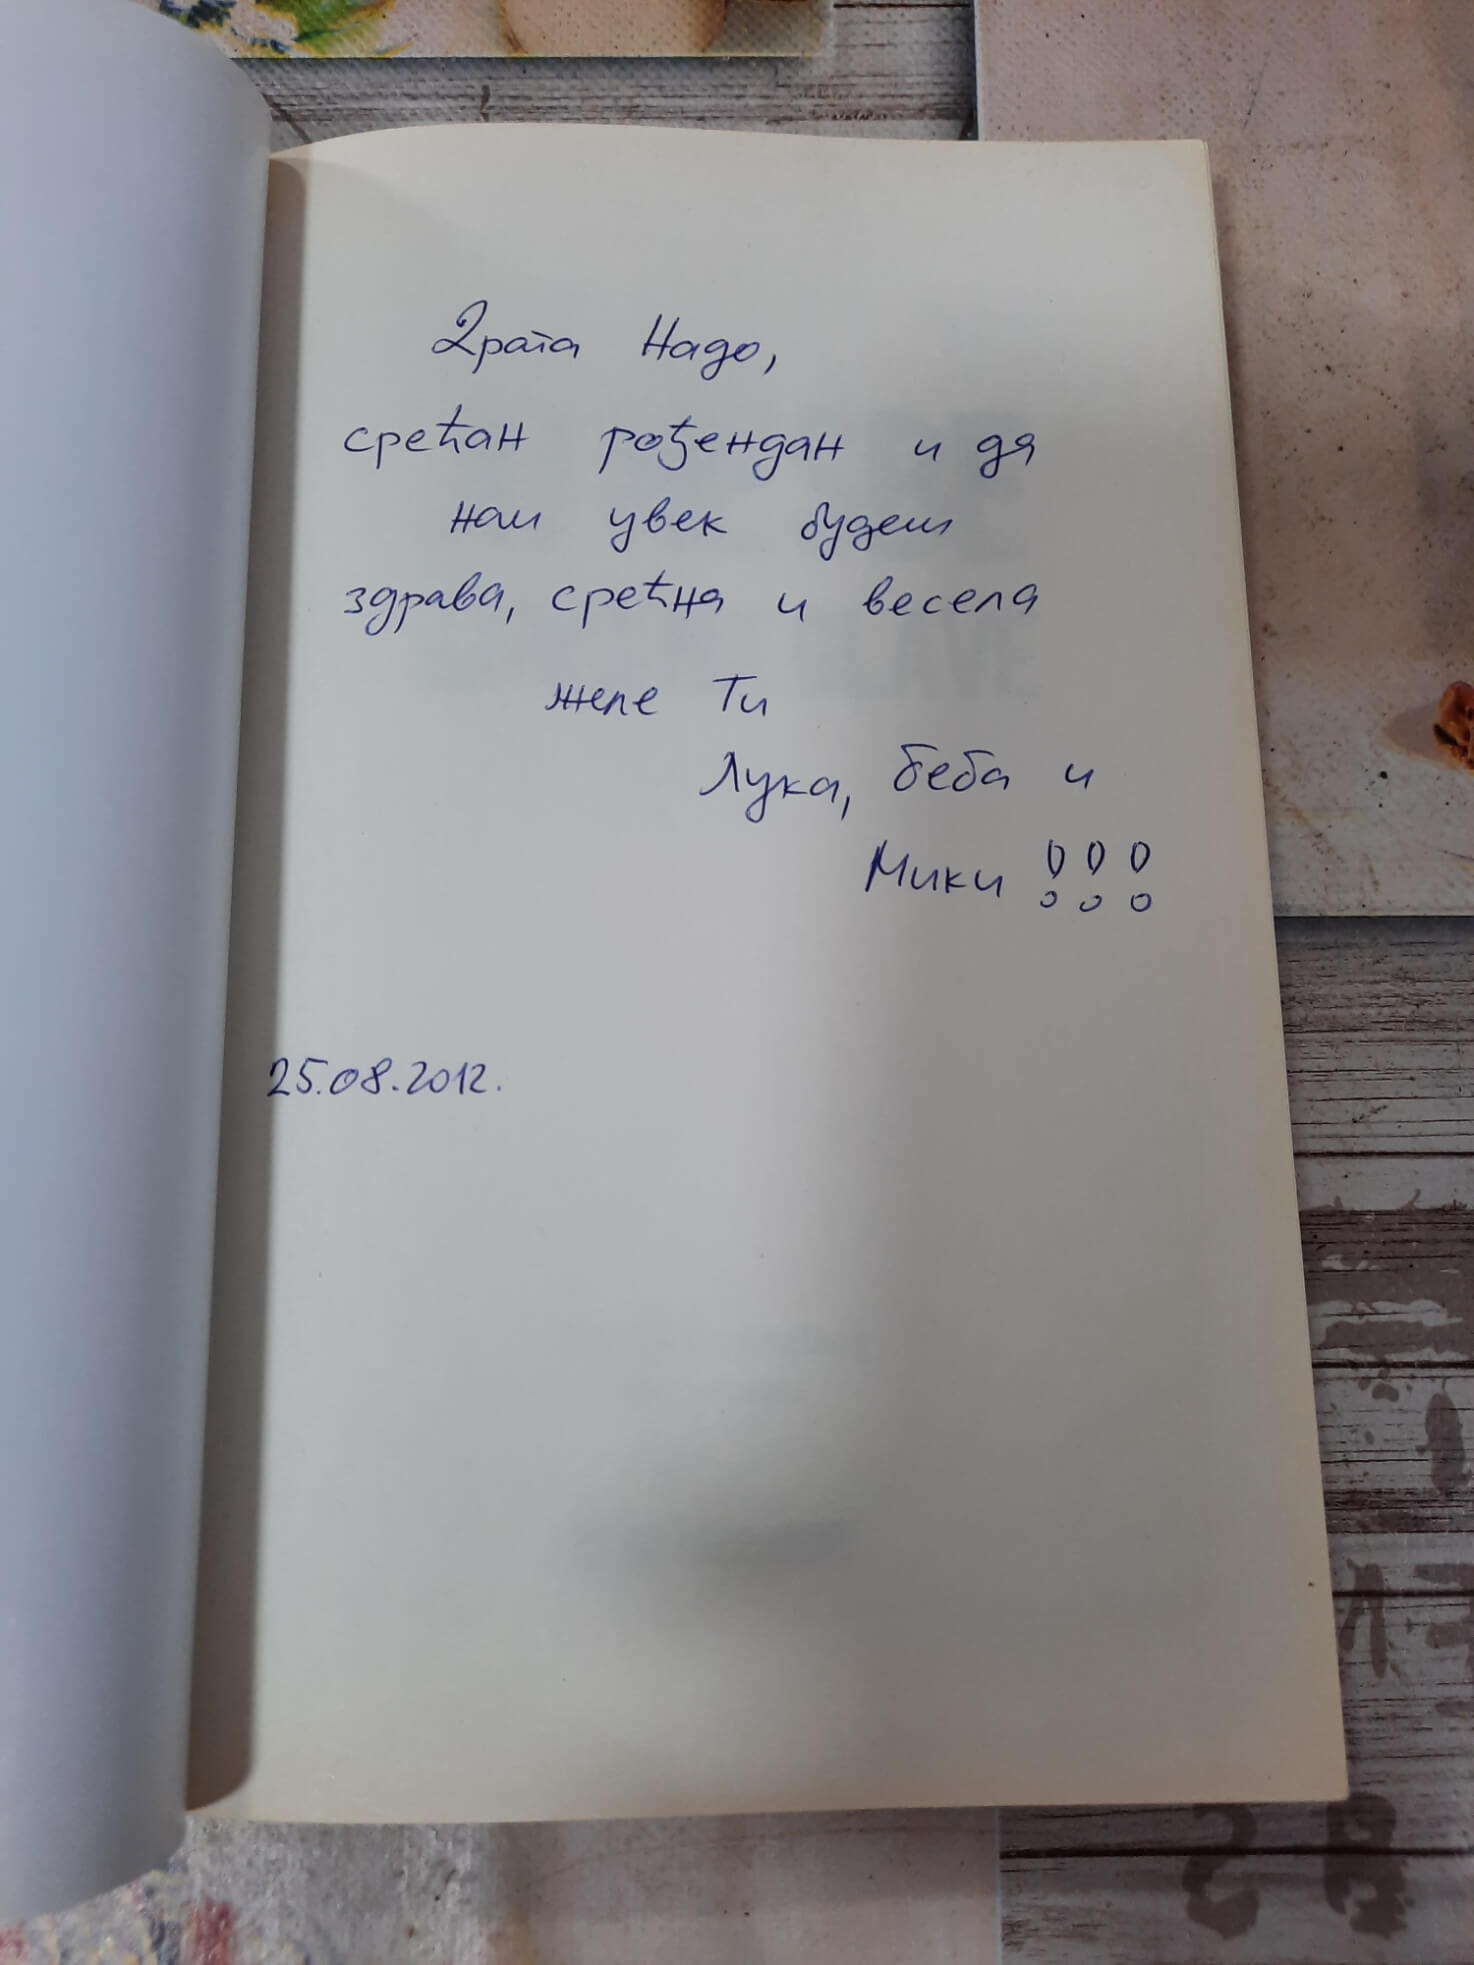 Драга Надо,
срећан рођендан и да
нам увек будеш
здрава, срећна и весела
желе Ти
Лука, беба и
Мики !!!
25.08.2012.